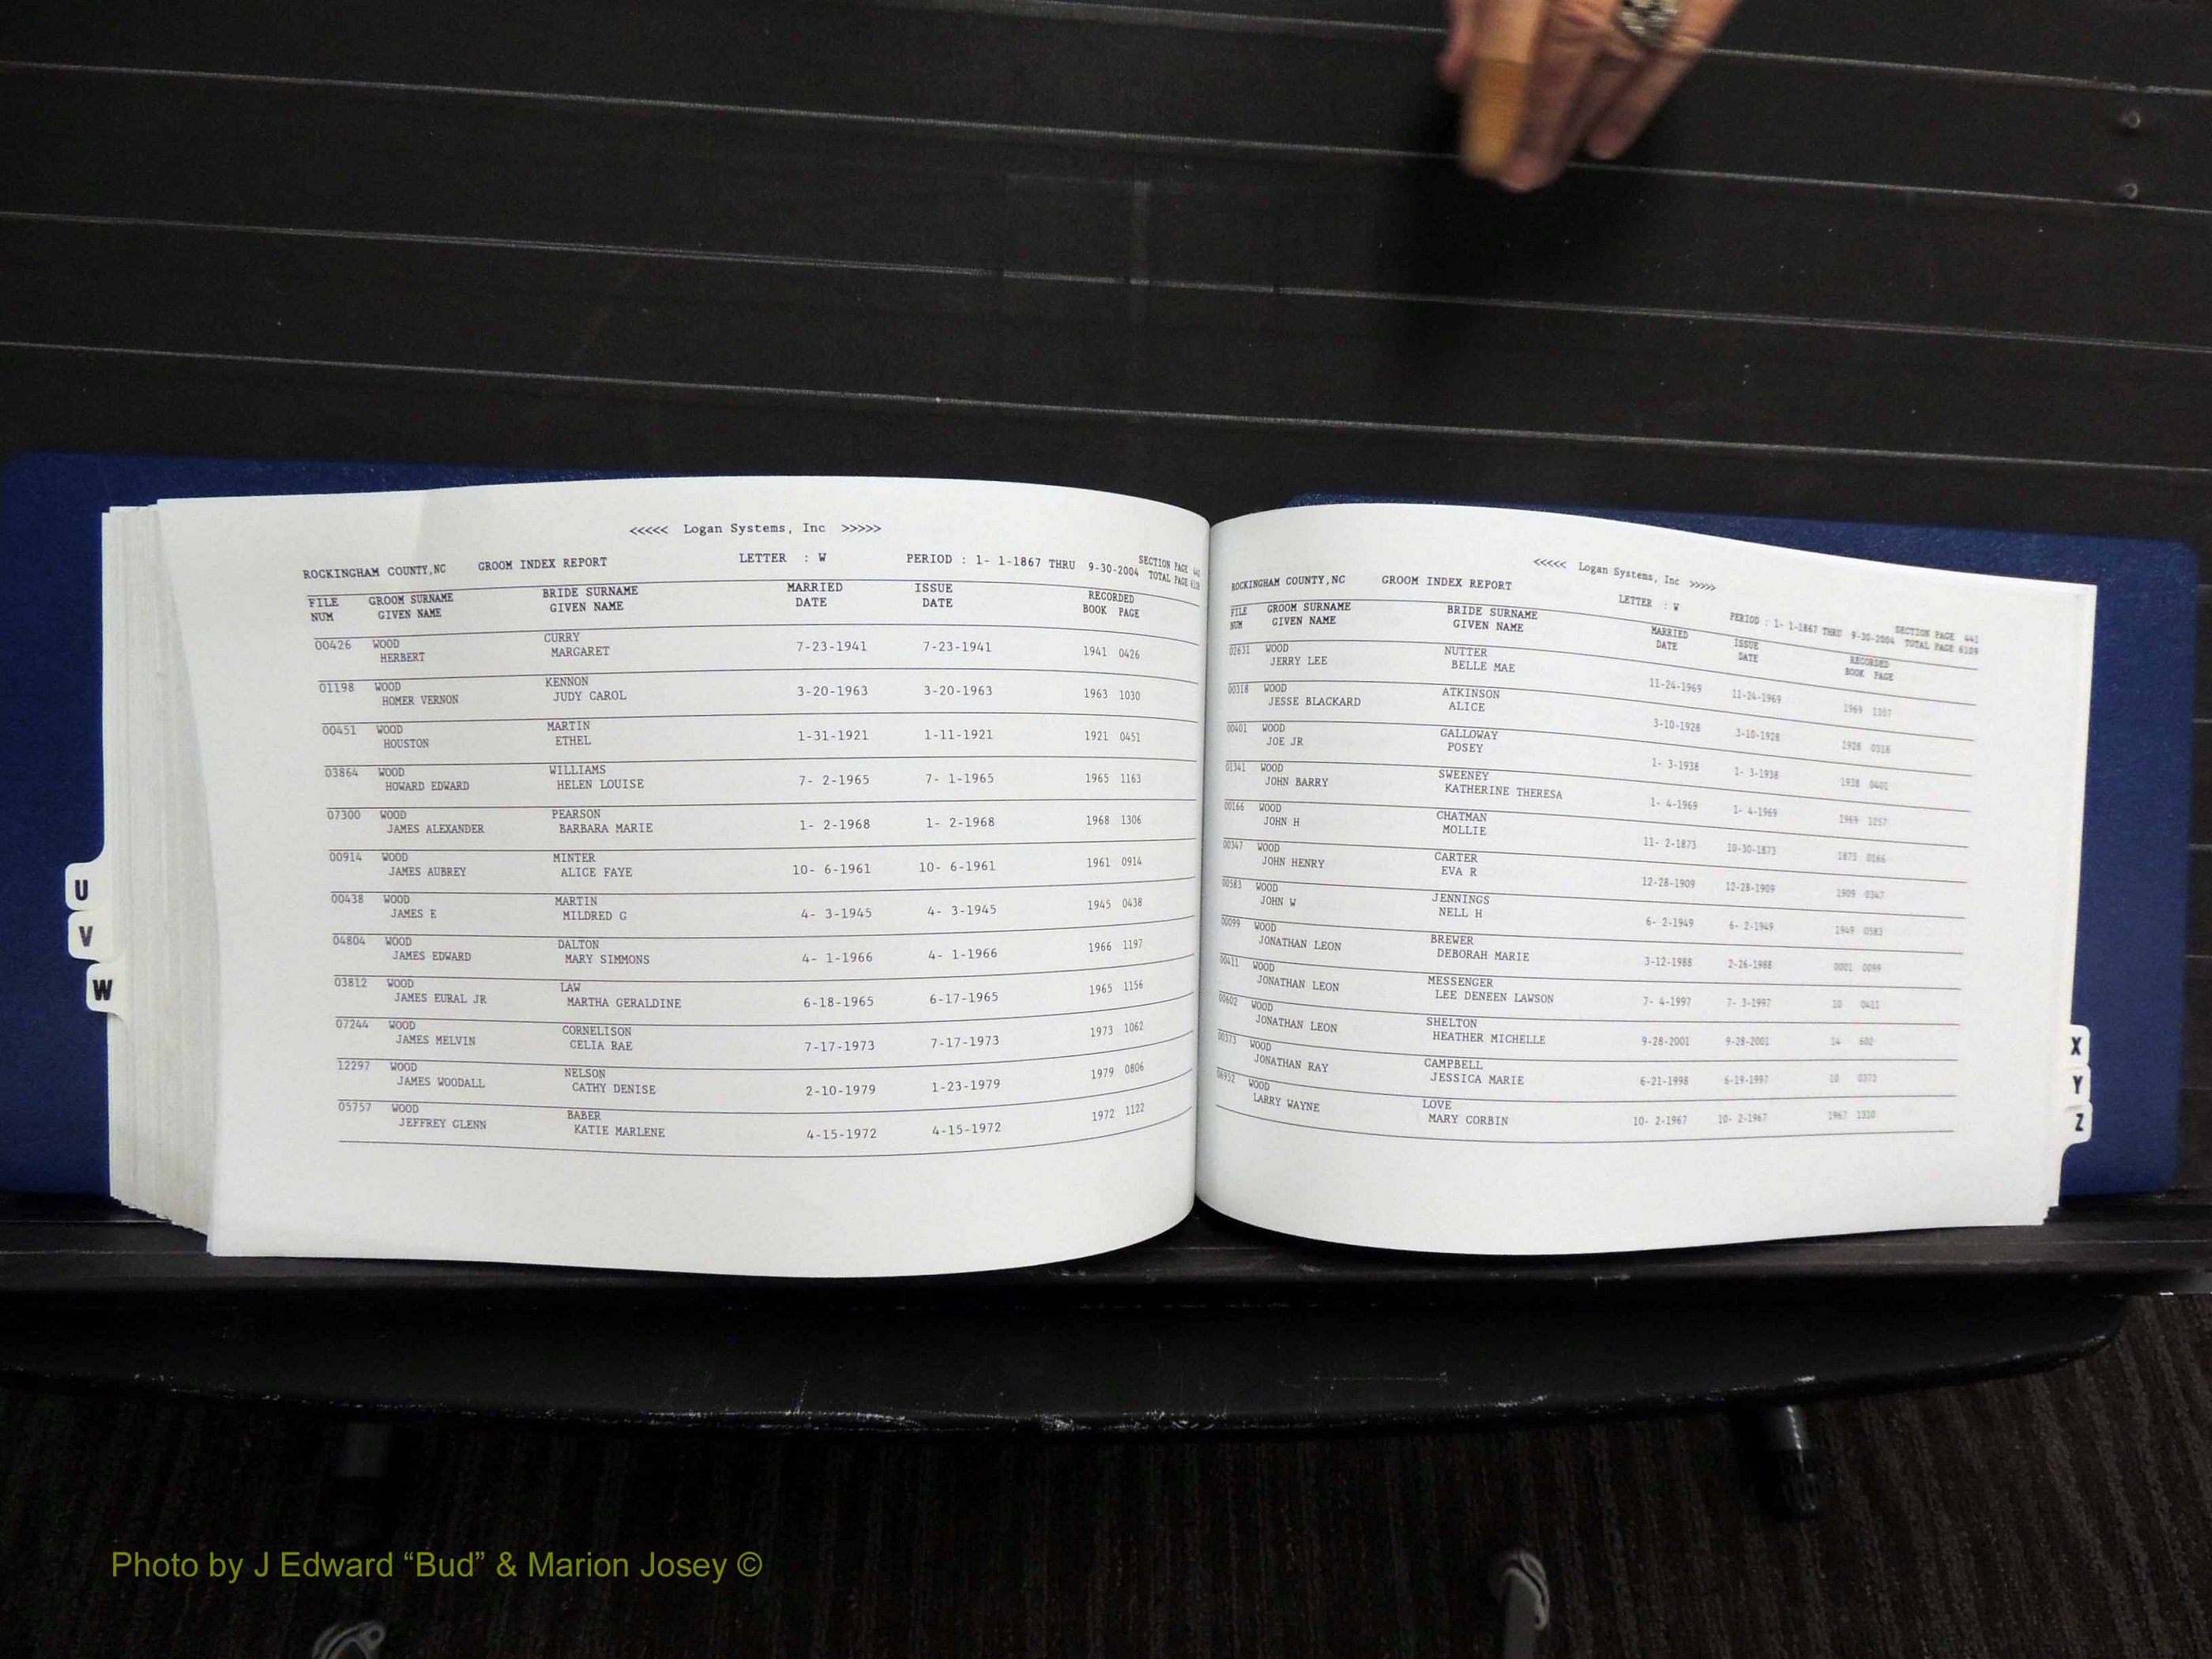 <<<<< Logan Systems, Inc >>>>>
ROCKINGHAM COUNTY,NC GROOM INDEX REPORT LETTER : W PERIOD : 1- 1-1867 THRU 9-30-2004 SECTION PAGE
TOTAL PAGE
FILE GROOM SURNAME BRIDE SURNAME MARRIED ISSUE RECORDED
NUM GIVEN NAME GIVEN NAME DATE DATE BOOK PAGE
00426 WOOD CURRY 7-23-1941 7-23-1941 1941 0426
HERBERT MARGARET
01198 WOOD KENNON 3-20-1963 3-20-1963 1963 1030
HOMER VERNON JUDY CAROL
00451 WOOD MARTIN 1-31-1921 1-11-1921 1921 0451
HOUSTON ETHEL
03864 WOOD WILLIAMS 7- 2-1965 7- 1-1965 1965 1163
HOWARD EDWARD HELEN LOUISE
07300 WOOD PEARSON 1- 2-1968 1- 2-1968 1968 1306
JAMES ALEXANDER BARBARA MARIE
00914 WOOD MINTER 10- 6-1961 10- 6-1961 1961 0914
JAMES AUBREY ALICE FAYE
00438 WOOD MARTIN 4- 3-1945 4- 3-1945 1945 0438
JAMES E MILDRED G
04804 WOOD DALTON 4- 1-1966 4- 1-1966 1966 1197
JAMES EDWARD MARY SIMMONS
03812 WOOD LAW 6-18-1965 6-17-1965 1965 1156
JAMES EURAL JR MARTHA GERALDINE
07244 WOOD CORNELISON 7-17-1973 7-17-1973 1973 1062
JAMES MELVIN CELIA RAE
12297 WOOD NELSON 2-10-1979 1-23-1979 1979 0806
JAMES WOODALL CATHY DENISE
05757 WOOD BABER 4-15-1972 4-15-1972 1972 1122
JEFFREY GLENN KATIE MARLENE
U
V
W
<<<<< Logan Systems, Inc >>>>>
ROCKINGHAM COUNTY,NC GROOM INDEX REPORT LETTER : W PERIOD : 1- 1-1867 THRU 9-30-2004 SECTION PAGE 441
TOTAL PAGE 6109
FILE GROOM SURNAME BRIDE SURNAME MARRIED ISSUE RECORDED
NUM GIVEN NAME GIVEN NAME DATE DATE BOOK PAGE
02631 WOOD NUTTER 11-24-1969 11-24-1969 1969 1357
JERRY LEE BELLE MAE
00318 WOOD ATKINSON 3-10-1928 3-10-1928 1928 0318
JESSE BLACKARD ALICE
00401 WOOD GALLOWAY 1- 3-1938 1- 3-1938 1938 0401
JOE JR POSEY
01341 WOOD SWEENEY 1- 4-1969 1- 4-1969 1969 1257
JOHN BARRY KATHERINE THERESA
00166 WOOD CHATMAN 11- 2-1873 10-30-1873 1873 0166
JOHN H MOLLIE
00347 WOOD CARTER 12-28-1909 12-28-1909 1909 0347
JOHN HENRY EVA R
00583 WOOD JENNINGS 6- 2-1949 6- 2-1949 1949 0583
JOHN W NELL H
00099 WOOD BREWER 3-12-1988 2-26-1988 0001 0099
JONATHAN LEON DEBORAH MARIE
00411 WOOD MESSENGER 7- 4-1997 7- 3-1997 10 0411
JONATHAN LEON LEE DENEEN LAWSON
00602 WOOD SHELTON 9-28-2001 9-28-2001 14 602
JONATHAN LEON HEATHER MICHELLE
00373 WOOD CAMPBELL 6-21-1998 6-19-1997 10 0373
JONATHAN RAY JESSICA MARIE
06952 WOOD LOVE 10- 2-1967 10- 2-1967 1967 1310
LARRY WAYNE MARY CORBIN
X
Y
Z
Photo by J Edward “Bud” & Marion Josey ©